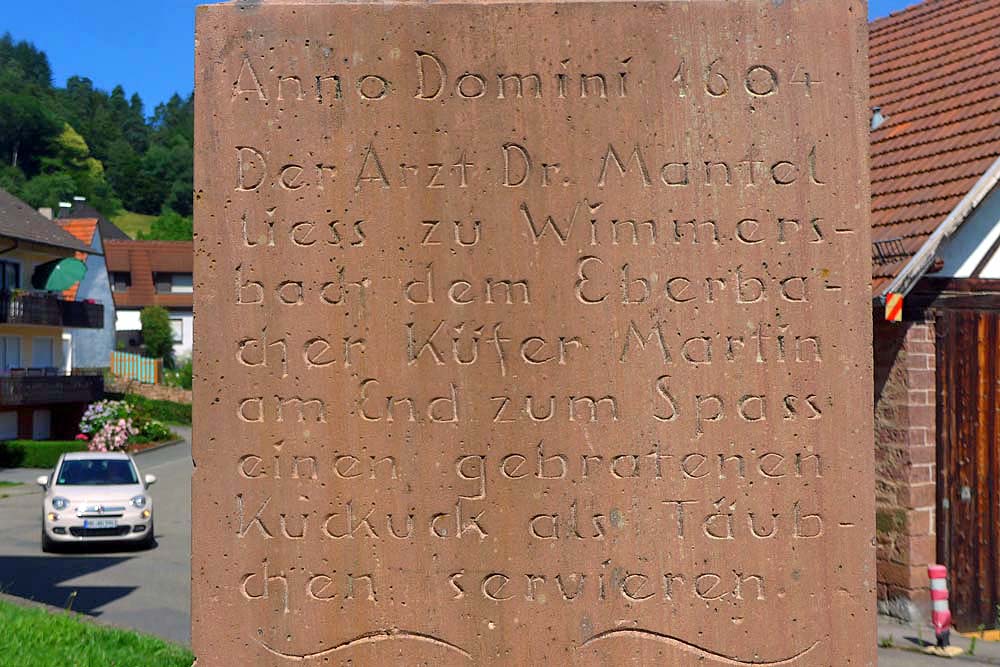 Anno Domini 1604
Der Arzt Dr. Mantel
liess zu Wimmers-
bach dem Eberba-
cher Küfer Martin
am End zum Spass
einen gebratenen
Kuckuck als Täub-
chen servieren.